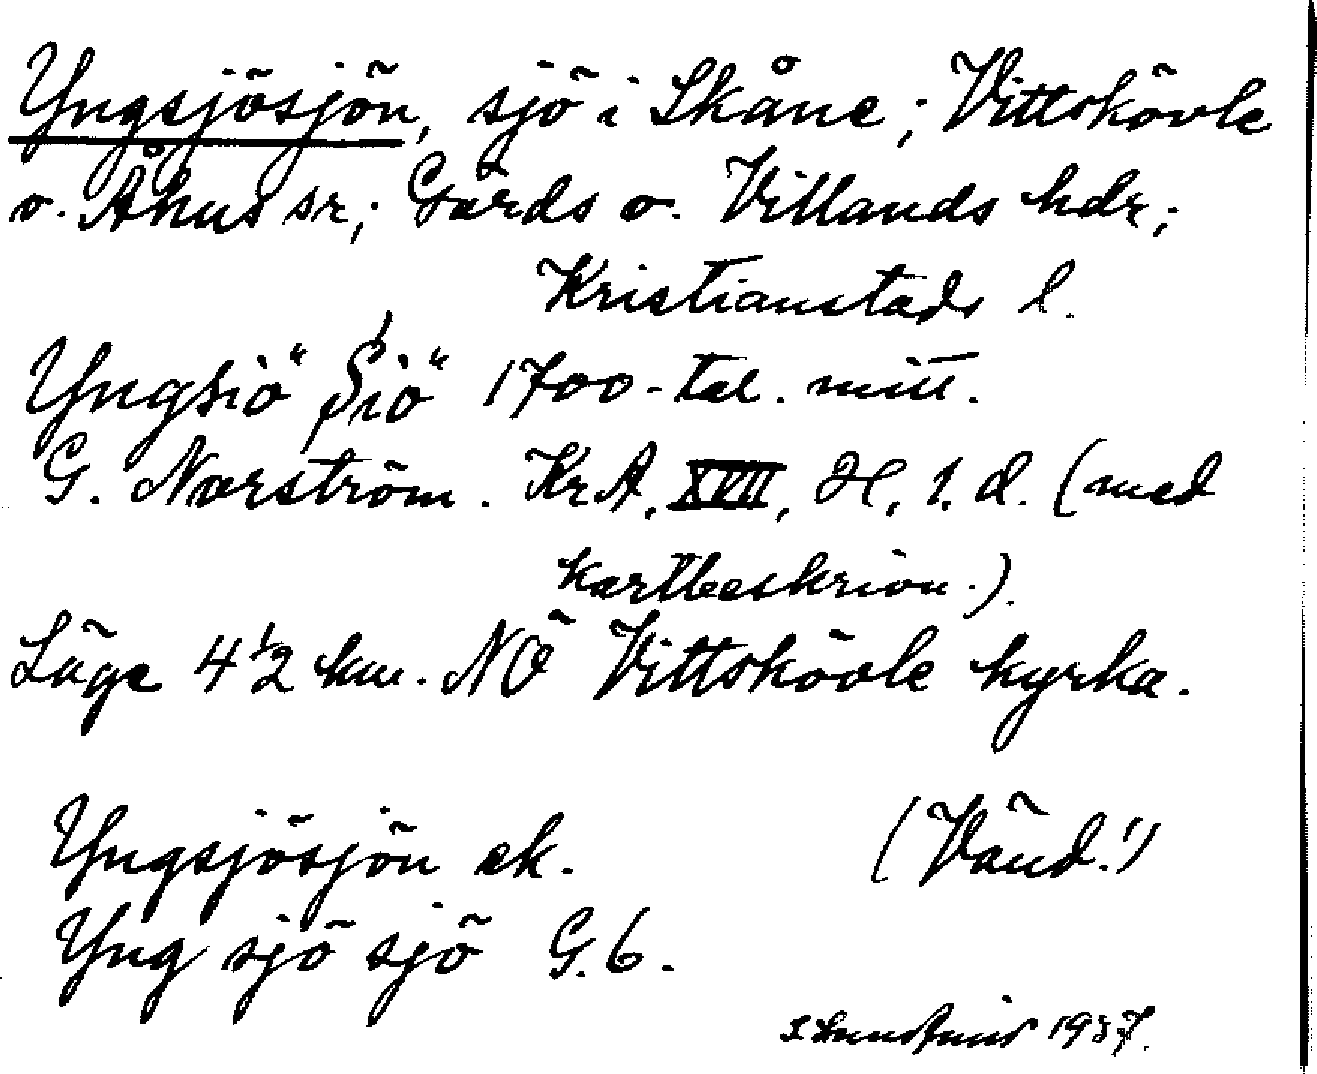 Yngsjösjön, sjö i Skåne; Vittskövle
o. Åhus sr; Gärds o. Villands hdr;
Kristianstads l.
Yngsiö Siö 1700-tal. mitt.
G. Norström. KrA, XVII, H, 1. d. (med
kartbeskrivn.).
Läge 4 1/2 km. NÖ Vittskövle kyrka.
Yngsjösjön ek. (Vänd!)
Yng sjö sjö G.6.
1937.